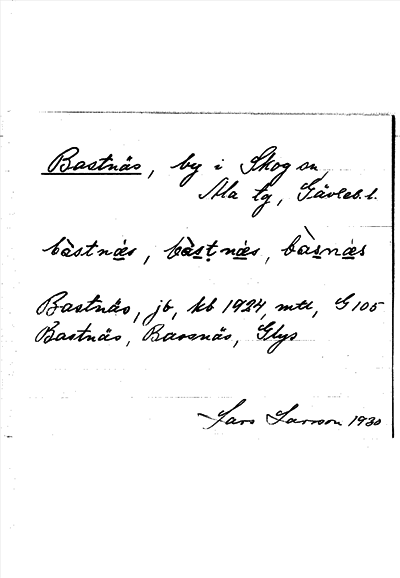 Bastnäs, by i Skog sn,
Ala tg, Gävleb. l.
bàstnæs, bàs̲tnæs, bàs̲næs
Bastnäs, jb, kb 1924, mtl, G 105
Bastnäs, Barsnäs, Glys
Lars Larsson 1930